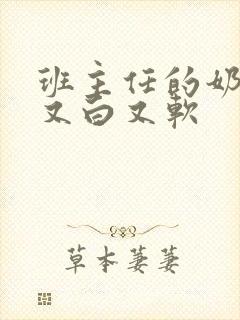 班主任的奶
又白又软
草本萋萋